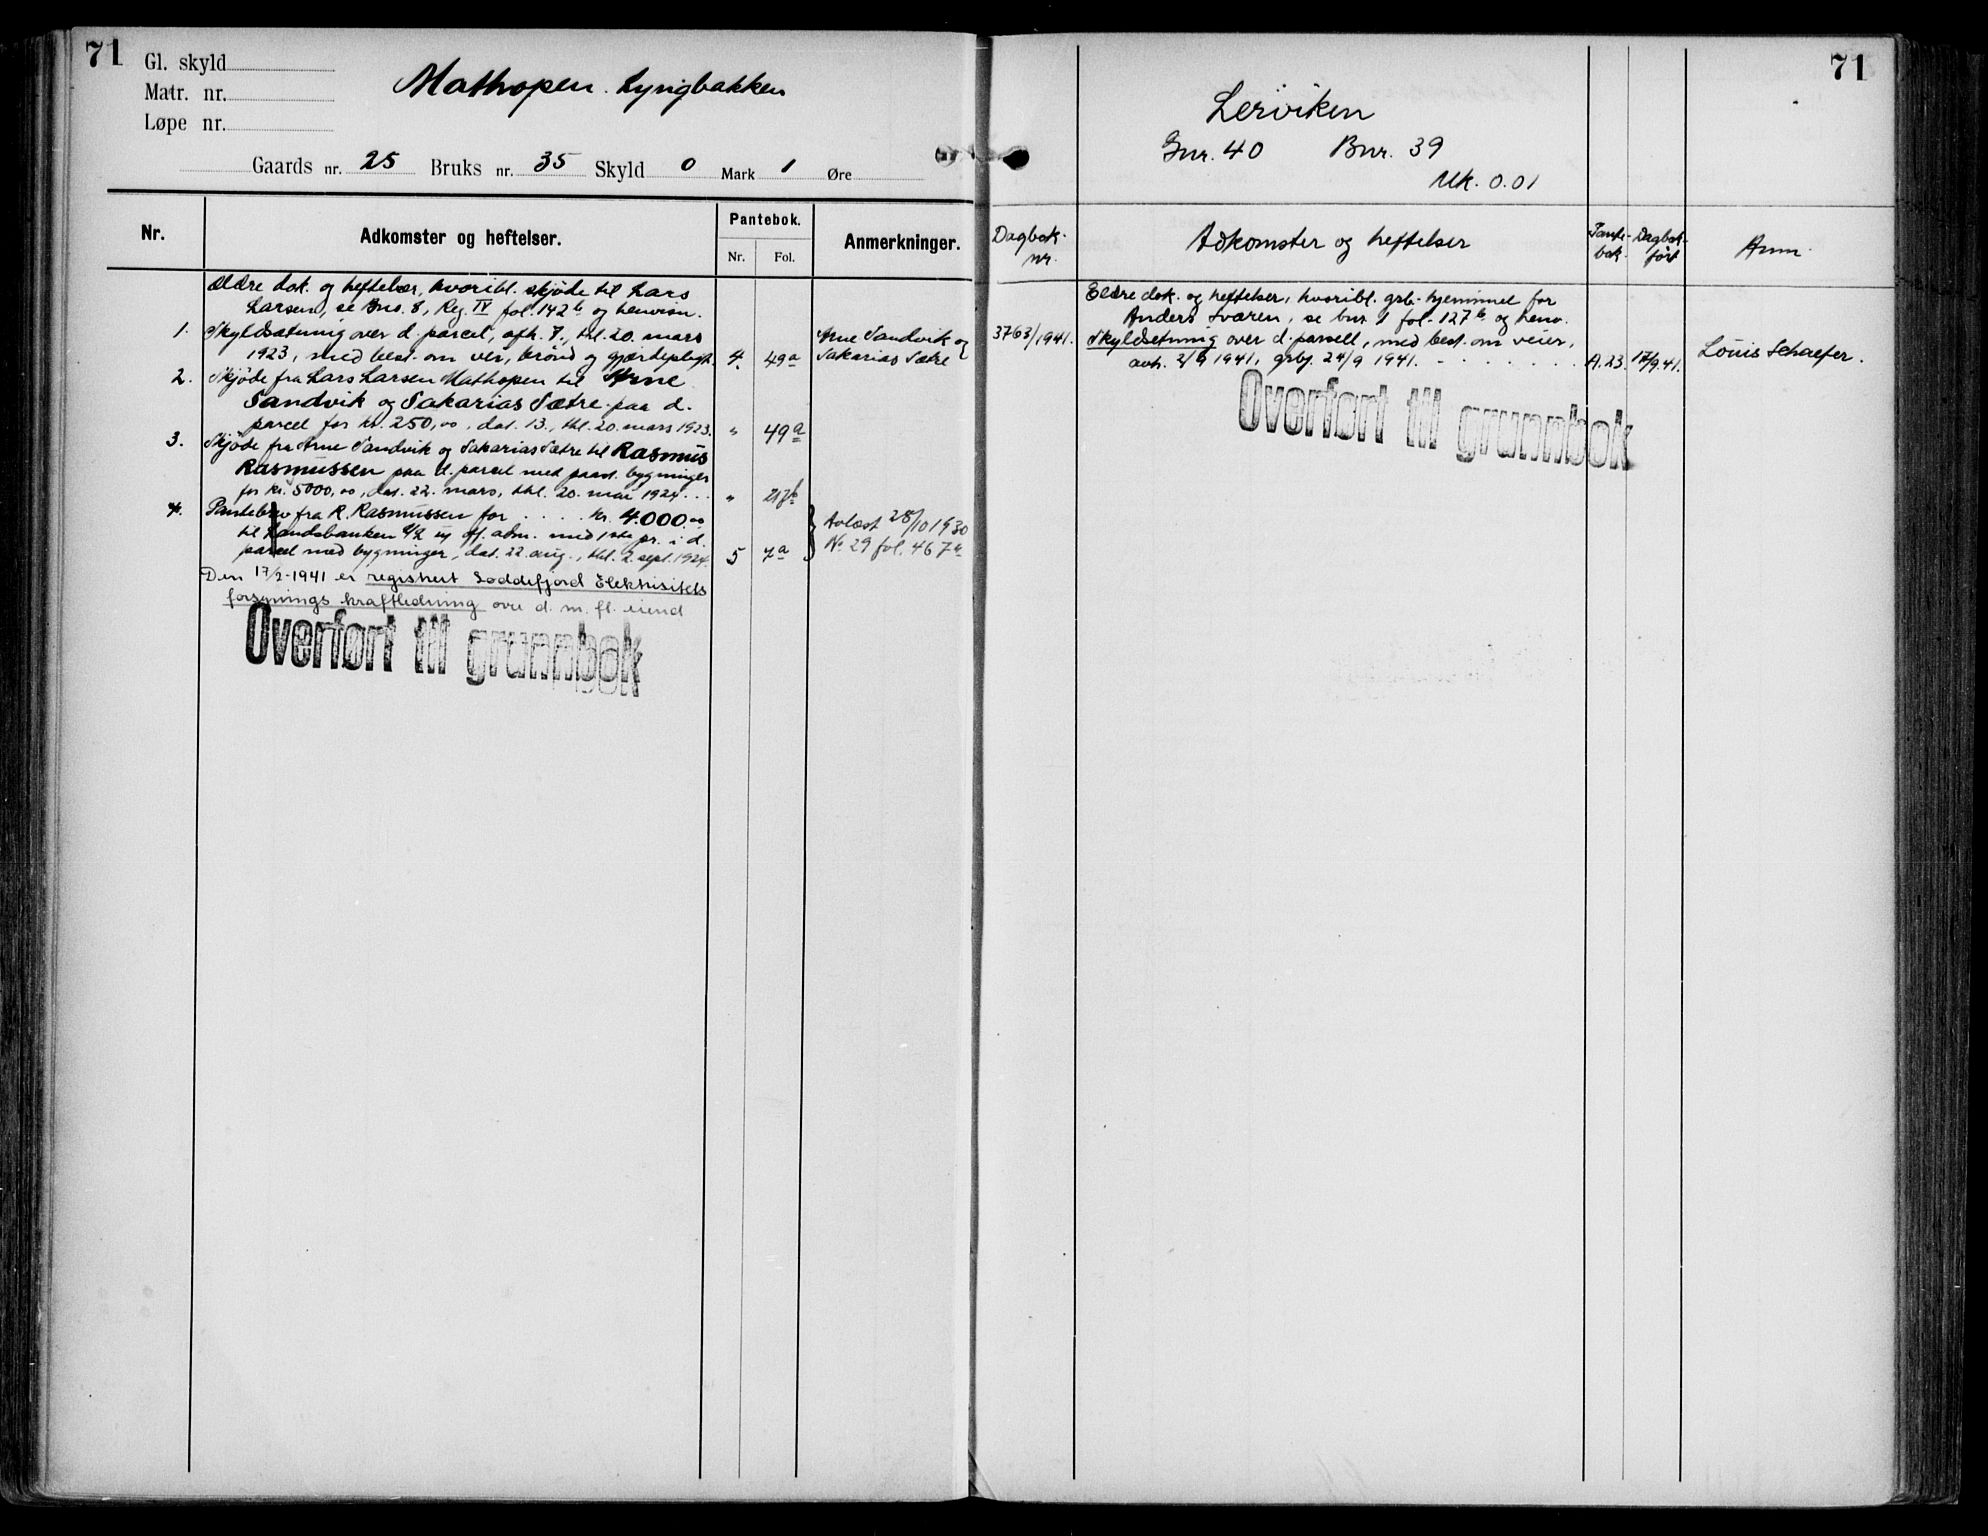 71
Gl. skyld
Matr. nr.
Løpe nr.
Mathopen. Lyngbakken
Gaards nr. 25 Bruks nr. 35 Skyld 0 Mark 1 Øre
Nr. Adkomster og heftelser. Pantebok. Anmerkninger.
Nr. Fol.
Ældre dok. og heftelser, hvoribl. skjøde til Lars
Larsen, se Bns. 8, Reg. IV fol. 142 b og henvisn.
1. Skyldsætning over d. parcel, afh. 7., thl. 20. mars
1923, med best. om vei, brønd og gjærdepligt. 4. 49a Arne Sandvik og Sakarias Sætre
2. Skjøde fra Lars Larsen Mathopen til Arne
Sandvik og Sakarias Sætre paa d.
parcel for kr. 250,00, dat. 13., thl. 20. mars 1923. " 49a
3. Skjøde fra Arne Sandvik og Sakarias Sætre til Rasmus
Rasmussen paa d. parcel med paast. bygninger
for kr. 5000,00, dat. 22. mars, thl. 20. mai 1924... "
4. Pantebrev fra R. Rasmussen for .... kr. 4.000.00
til Landsbanken A/S off. adm. med 1ste pr. i d.
parcel med bygninger, dat. 22. aug., thl. 2. sept. 1924. 5 7a
Avlæst 28/10 1930
No 29 fol. 467a
Den 17/2-1941 er registrert Loddefjord Elektrisitets
forsynings kraftledning over d. m. fl. eiend
Overført til grunnbok
71
Lerviken
Gnr. 40 Bnr. 39
Mk. 0.01
Dagbok- nr. Adkomster og heftelser Pante- bok. Dagbok- ført Anm.
Eldre dok. og heftelser, hvoribl. grb. hjemmel for
Anders Sværen, se bnr. 1 fol. 127 b og henv.
3763/1941. Skyldsetning over d. parsell, med best. om veier,
avh. 2/9 1941, grbj. 24/9 1941. A.23. 17/9.41. Louis Schaefer.
Overført til grunnbok